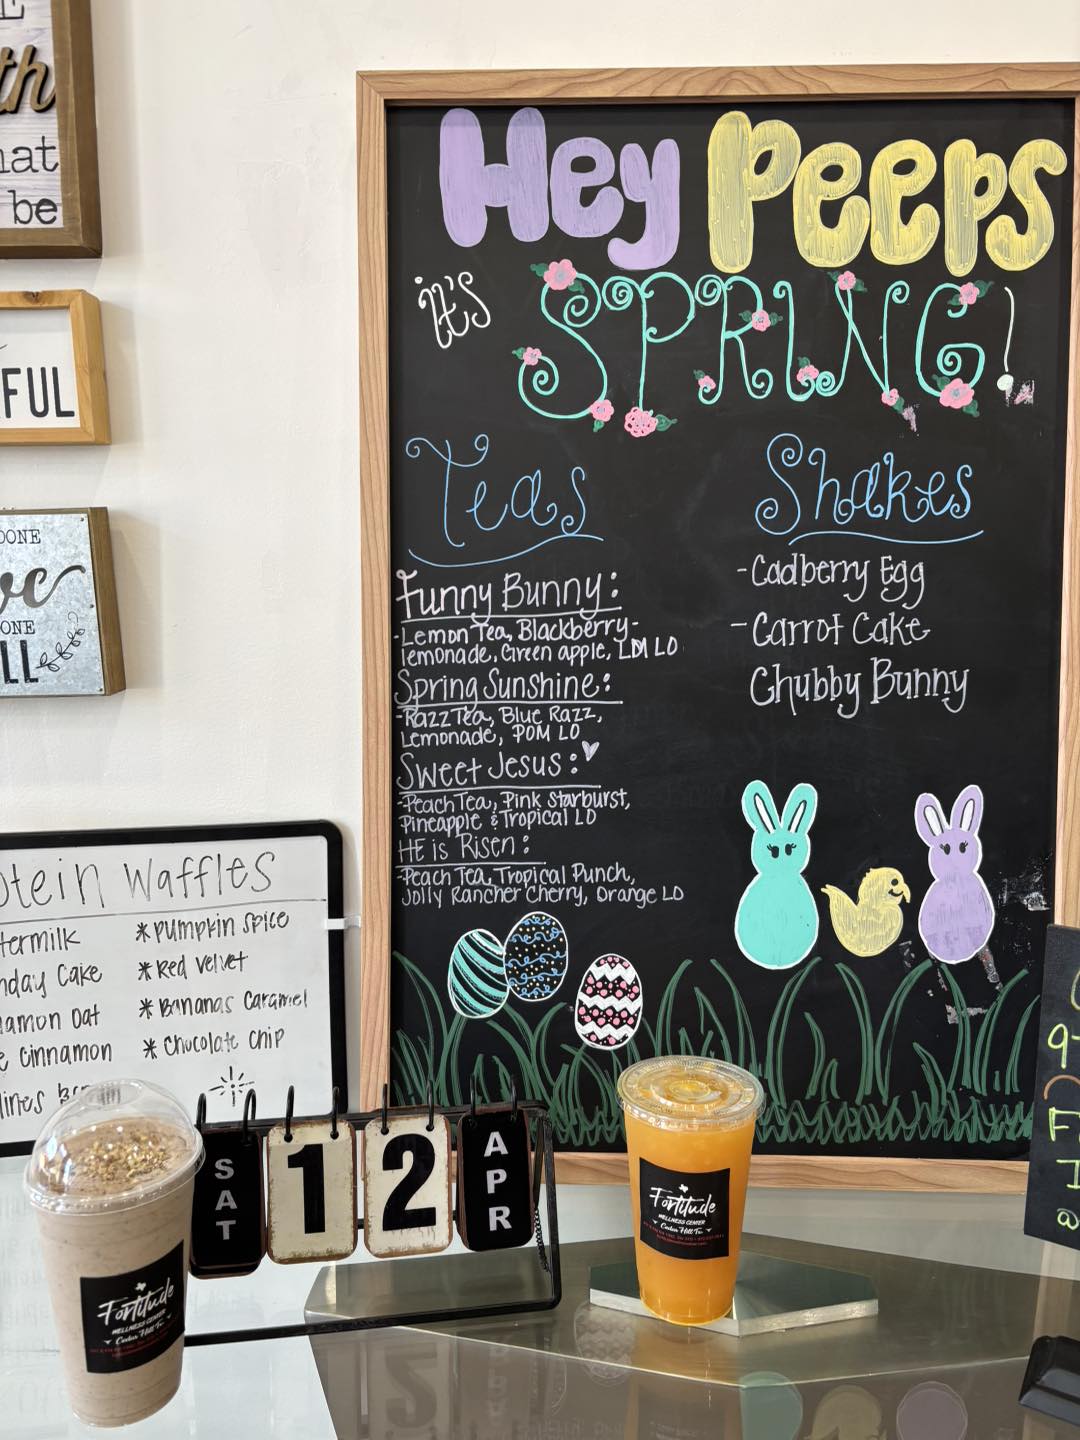 th
hat
be
FUL
DONE
ONE
LL
Hey Peeps
it's SPRING!
Teas
Funny Bunny:
-Lemon Tea, Blackberry-
lemonade, Green apple, LDM LO
Spring Sunshine:
-Razz Tea, Blue Razz,
Lemonade, POM LO
Sweet Jesus:
-Peach Tea, Pink Starburst,
Pineapple & Tropical LO
HE is Risen:
-Peach Tea, Tropical Punch,
Jolly Rancher Cherry, Orange LO
Shakes
-Cadberry Egg
-Carrot Cake
Chubby Bunny
otein Waffles
termilk
hday Cake
namon Oat
e Cinnamon
lines
*Pumpkin Spice
*Red Velvet
*Bananas Caramel
*Chocolate Chip
SAT 12 APR
Fortitude
WELLNESS CENTER
Cedar Hill Tx.
Fortitude
WELLNESS CENTER
Cedar Hill Tx.